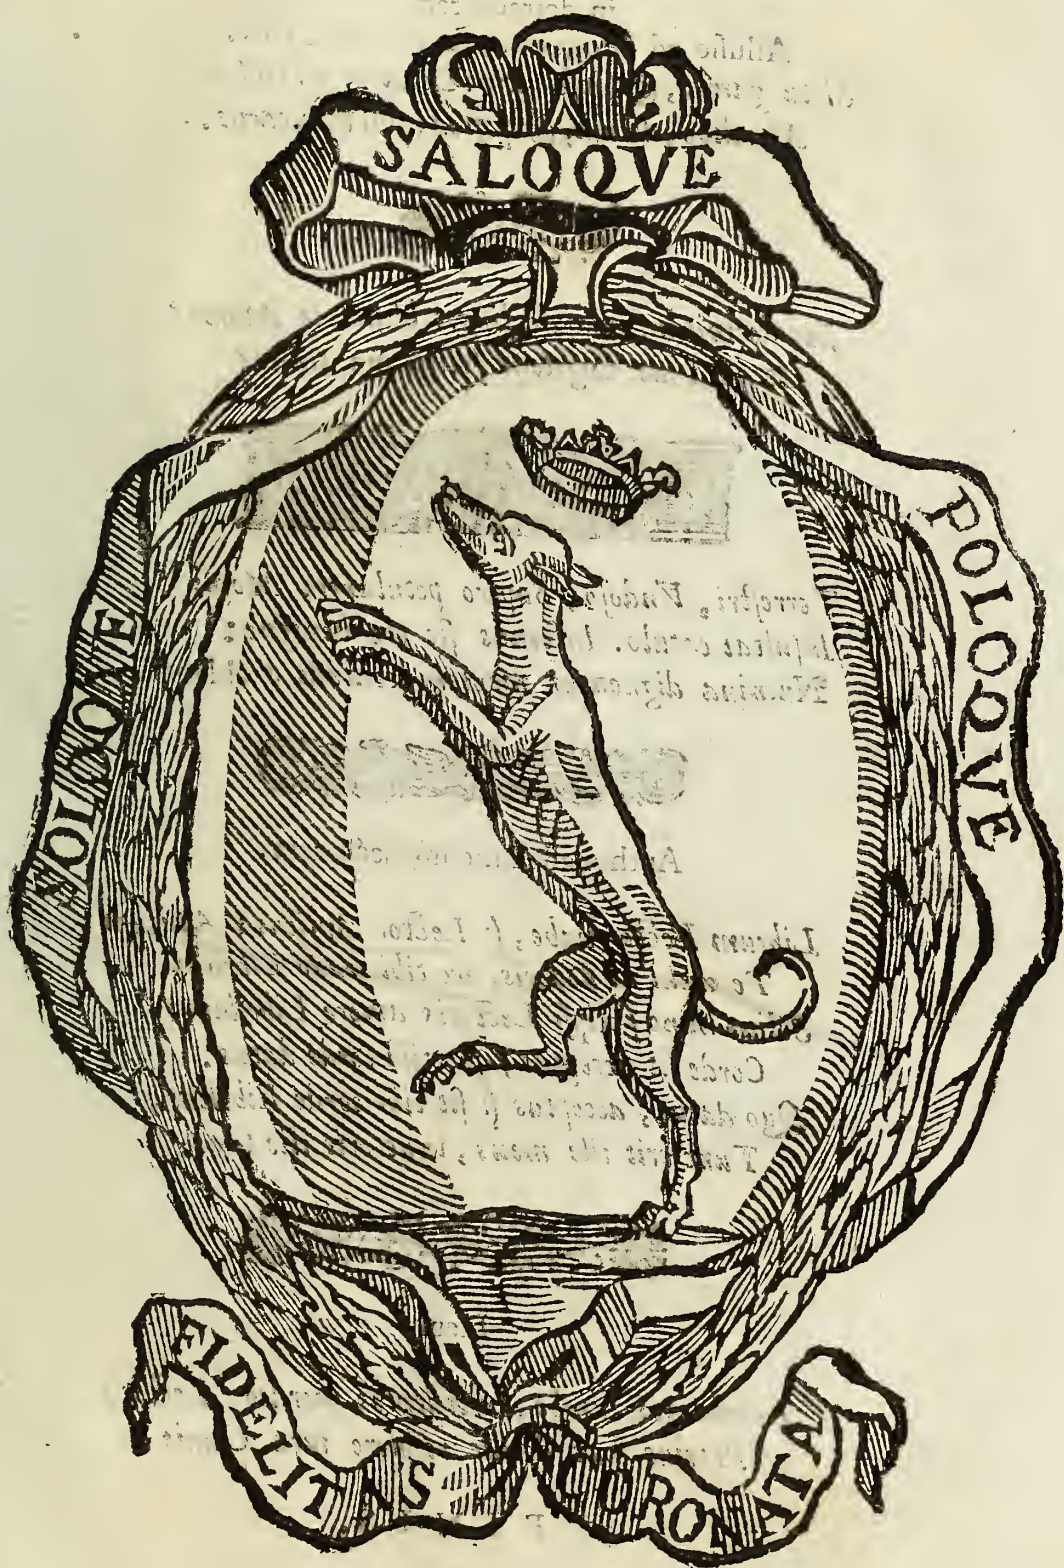 SALOQVE
SOLOQVE
POLOQVE
FIDELITAS CORONATA